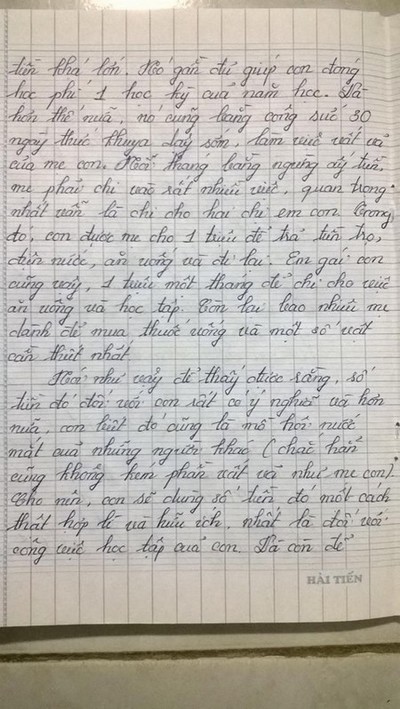 tiền khá lớn. Nó gần đủ giúp con đóng
học phí 1 học kỳ của năm học. Và
hơn thế nữa, nó cũng bằng công sức 30
ngày thức khuya dậy sớm, làm việc vất vả
của mẹ con. Mỗi tháng bằng ngưng ấy tiền,
mẹ phải chi vào rất nhiều việc, quan trọng
nhất vẫn là chi cho hai chị em con. Trong
đó, con được mẹ cho 1 triệu để trả tiền trọ,
điện nước, ăn uống và đi lại. Em gái con
cũng vậy, 1 triệu một tháng để chi cho việc
ăn uống và học tập. Còn lại bao nhiêu mẹ
dành để mua thuốc uống và một số vật
cần thiết nhất.
Nói như vậy để thấy được rằng, số
tiền đó đối với con rất có ý nghĩa và hơn
nữa, con biết đó cũng là mồ hôi nước
mắt của những người khác (chắc hẳn
cũng không kém phần vất vả như mẹ con)
Cho nên, con sẽ dùng số tiền đó một cách
thật hợp lí và hữu ích, nhất là đối với
công việc học tập của con. Và còn để
HẢI TIẾN